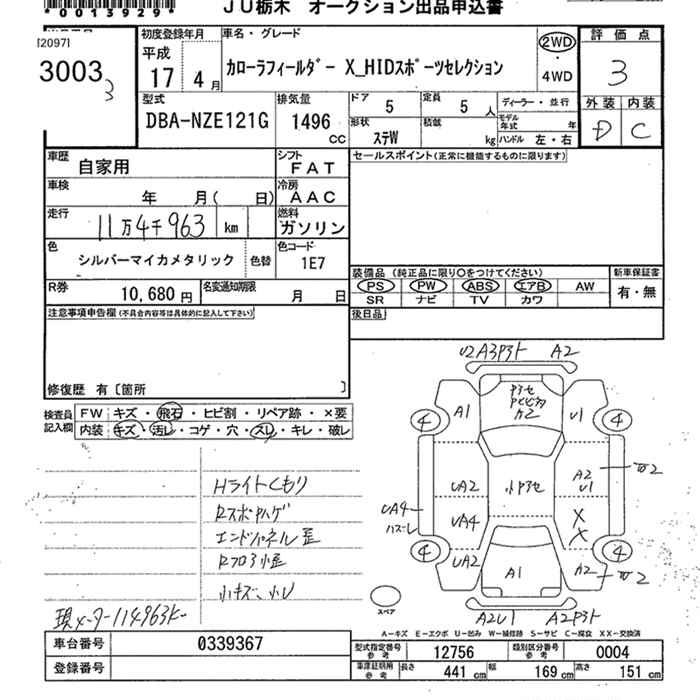 00013929
JU栃木 オークション出品申込書
(2097)
3003
3
初度登録年月
平成
17年 4月
車名・グレード
カローラフィールダー X_HIDスポーツセレクション
2WD
・
4WD
評価点
3
外装 内装
D C
型式
DBA-NZE121G
排気量
1496 CC
ドア 5
定員 5 人
ディーラー・並行
形状 ステW
積載 kg
モデル年式 年
ハンドル 左・右
車歴 自家用
シフト FAT
車検 年 月( 日)
冷房 AAC
走行 11万4千963 km
燃料 ガソリン
色 シルバーマイカメタリック 色替
色コード 1E7
R券 10,680円
名変通知期限 月 日
セールスポイント(正常に機能するものに限ります)
装備品(純正品に限り○をつけてください)
PS PW ABS エアB AW
SR ナビ TV カワ
新車保証書
有・無
後日品
注意事項申告欄(不具合内容等は具体的に記入して下さい)
修復歴 有〔箇所 〕
検査員記入欄
FW キズ・飛石・ヒビ割・リペア跡・×要
内装 キズ・汚レ・コゲ・穴・スレ・キレ・破レ
Hライトくもり
Rスポハゲ
エンドパネル歪
Rフロア小歪
小キズ、小U
現メーター114963K
U2A3P3ト A2
P3セ
A2
A1 U1
4 4
UA2
小P3セ
A2
U1
W2
UA4
ハズーレ
UA4
X
X
4 4
UA2
A1
A2
W2
A2U1 A2P3ト
スペア
A-キズ E-エクボ U-凹み W-補修跡 S-サビ C-腐食 XX-交換済
車台番号 0339367
登録番号
型式指定番号参考 12756
類別区分番号参考 0004
車庫証明用参考 長さ 441cm 幅 169cm 高さ 151cm